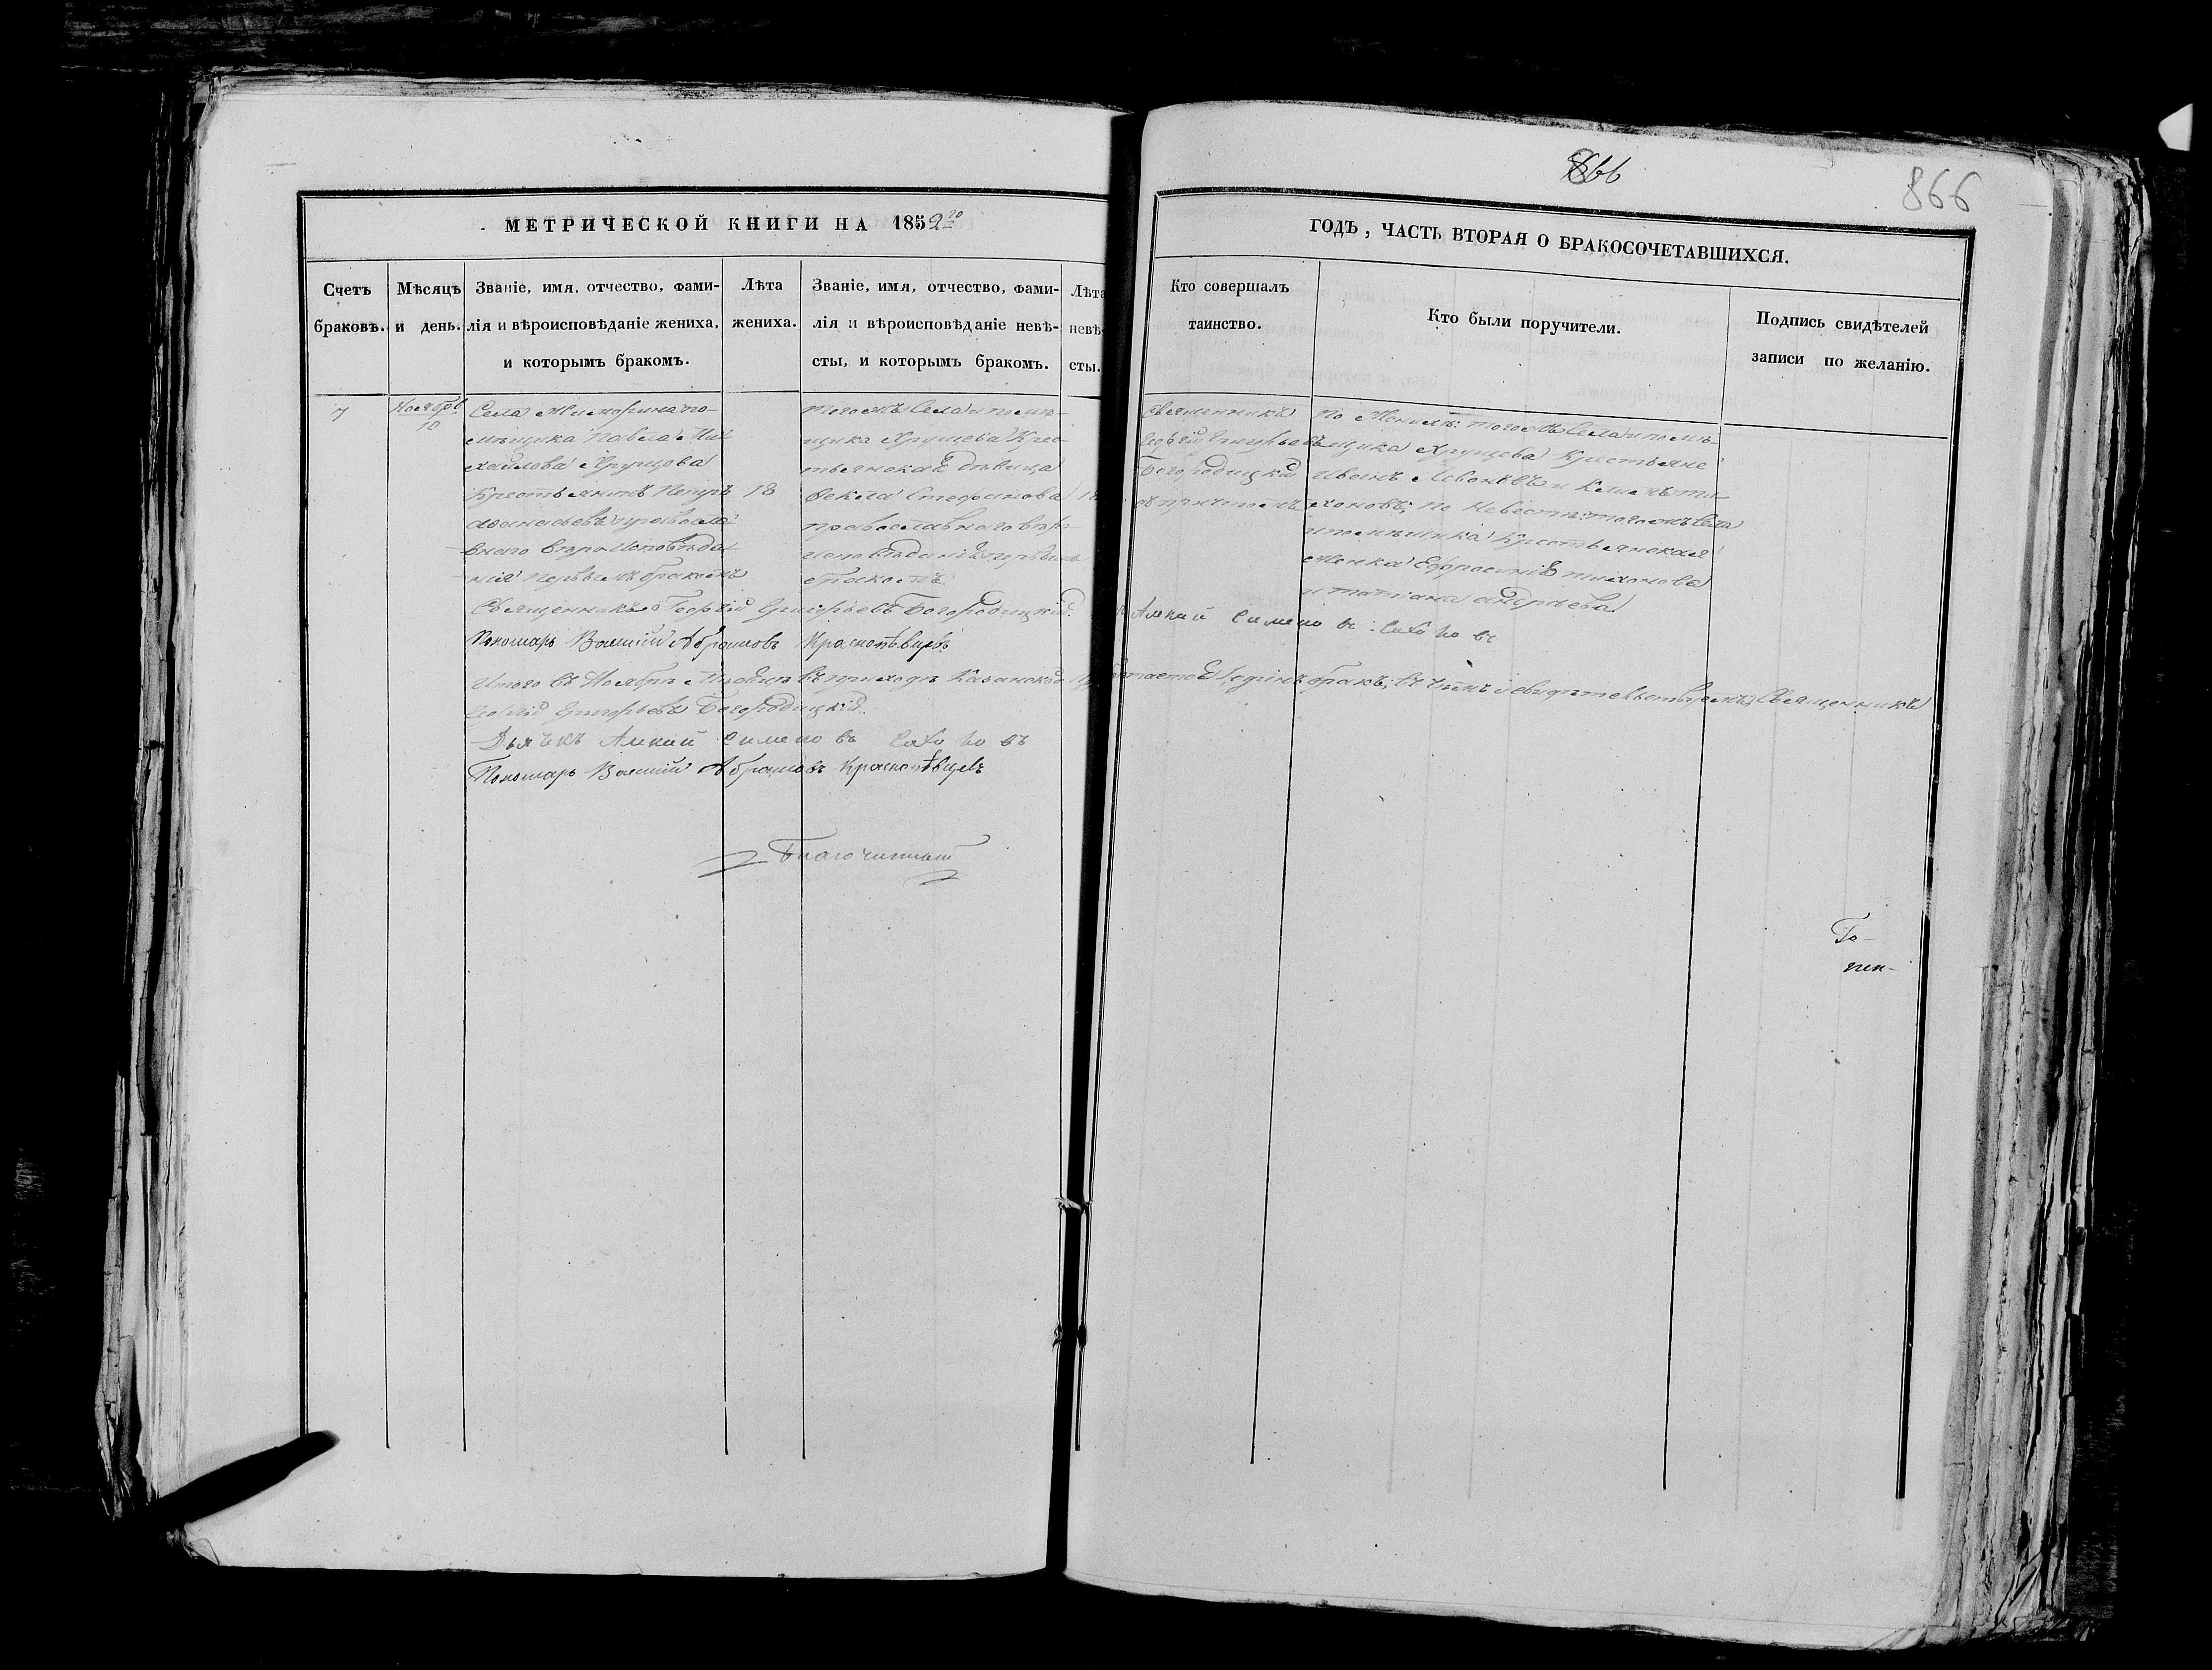 866
866
МЕТРИЧЕСКОЙ КНИГИ НА 1852го
ГОДЪ, ЧАСТЬ ВТОРАЯ О БРАКОСОЧЕТАВШИХСЯ.
Счетъ браковъ.
Мѣсяцъ и день.
Званіе, имя, отчество, фами-
лія и вѣроисповѣданіе жениха,
и которымъ бракомъ.
Лѣта
жениха.
Званіе, имя, отчество, фами-
лія и вѣроисповѣданіе невѣ-
сты, и которымъ бракомъ.
Лѣта
невѣ-
сты.
Кто совершалъ
таинство.
Кто были поручители.
Подпись свидѣтелей
записи по желанію.
7
Ноября
10
Села по-
мѣщика Павла Ми-
хайлова Хрущова
Крестьянинъ Петръ
Аѳанасьевъ правосла-
внаго вѣроисповѣда-
нія первымъ бракомъ
18
тогожъ Села и помѣ-
щика Хрущева Крес-
тьянская дѣвица
Ѳекла Стефанова
православнаго вѣро-
исповѣданія первымъ
бракомъ
18
Священникъ
Георгій Григорьевъ
Богородицкій
съ причтомъ
По Женихѣ: тогожъ Села и помѣ-
щика Хрущева Крестьяне
Иванъ и ти-
хоновъ; По Невѣстѣ: тогожъ Села
и помѣщика Крестьянская
Женка Евфросинія тихонова
и татіана андреева
Священникъ Георгій Григорьевъ Богородицкій
Симеоновъ
Пономарь Василій Абрамовъ Краснопѣвцевъ
Итого въ Ноябрѣ Мѣсяцѣ въ приходѣ Казанской одинъ бракъ; въ чемъ и свидѣтельствуемъ Священникъ
Георгій Григорьевъ Богородицкій
Дьячекъ Симеоновъ
Пономарь Василій Абрамовъ Краснопѣвцевъ
Благочинный